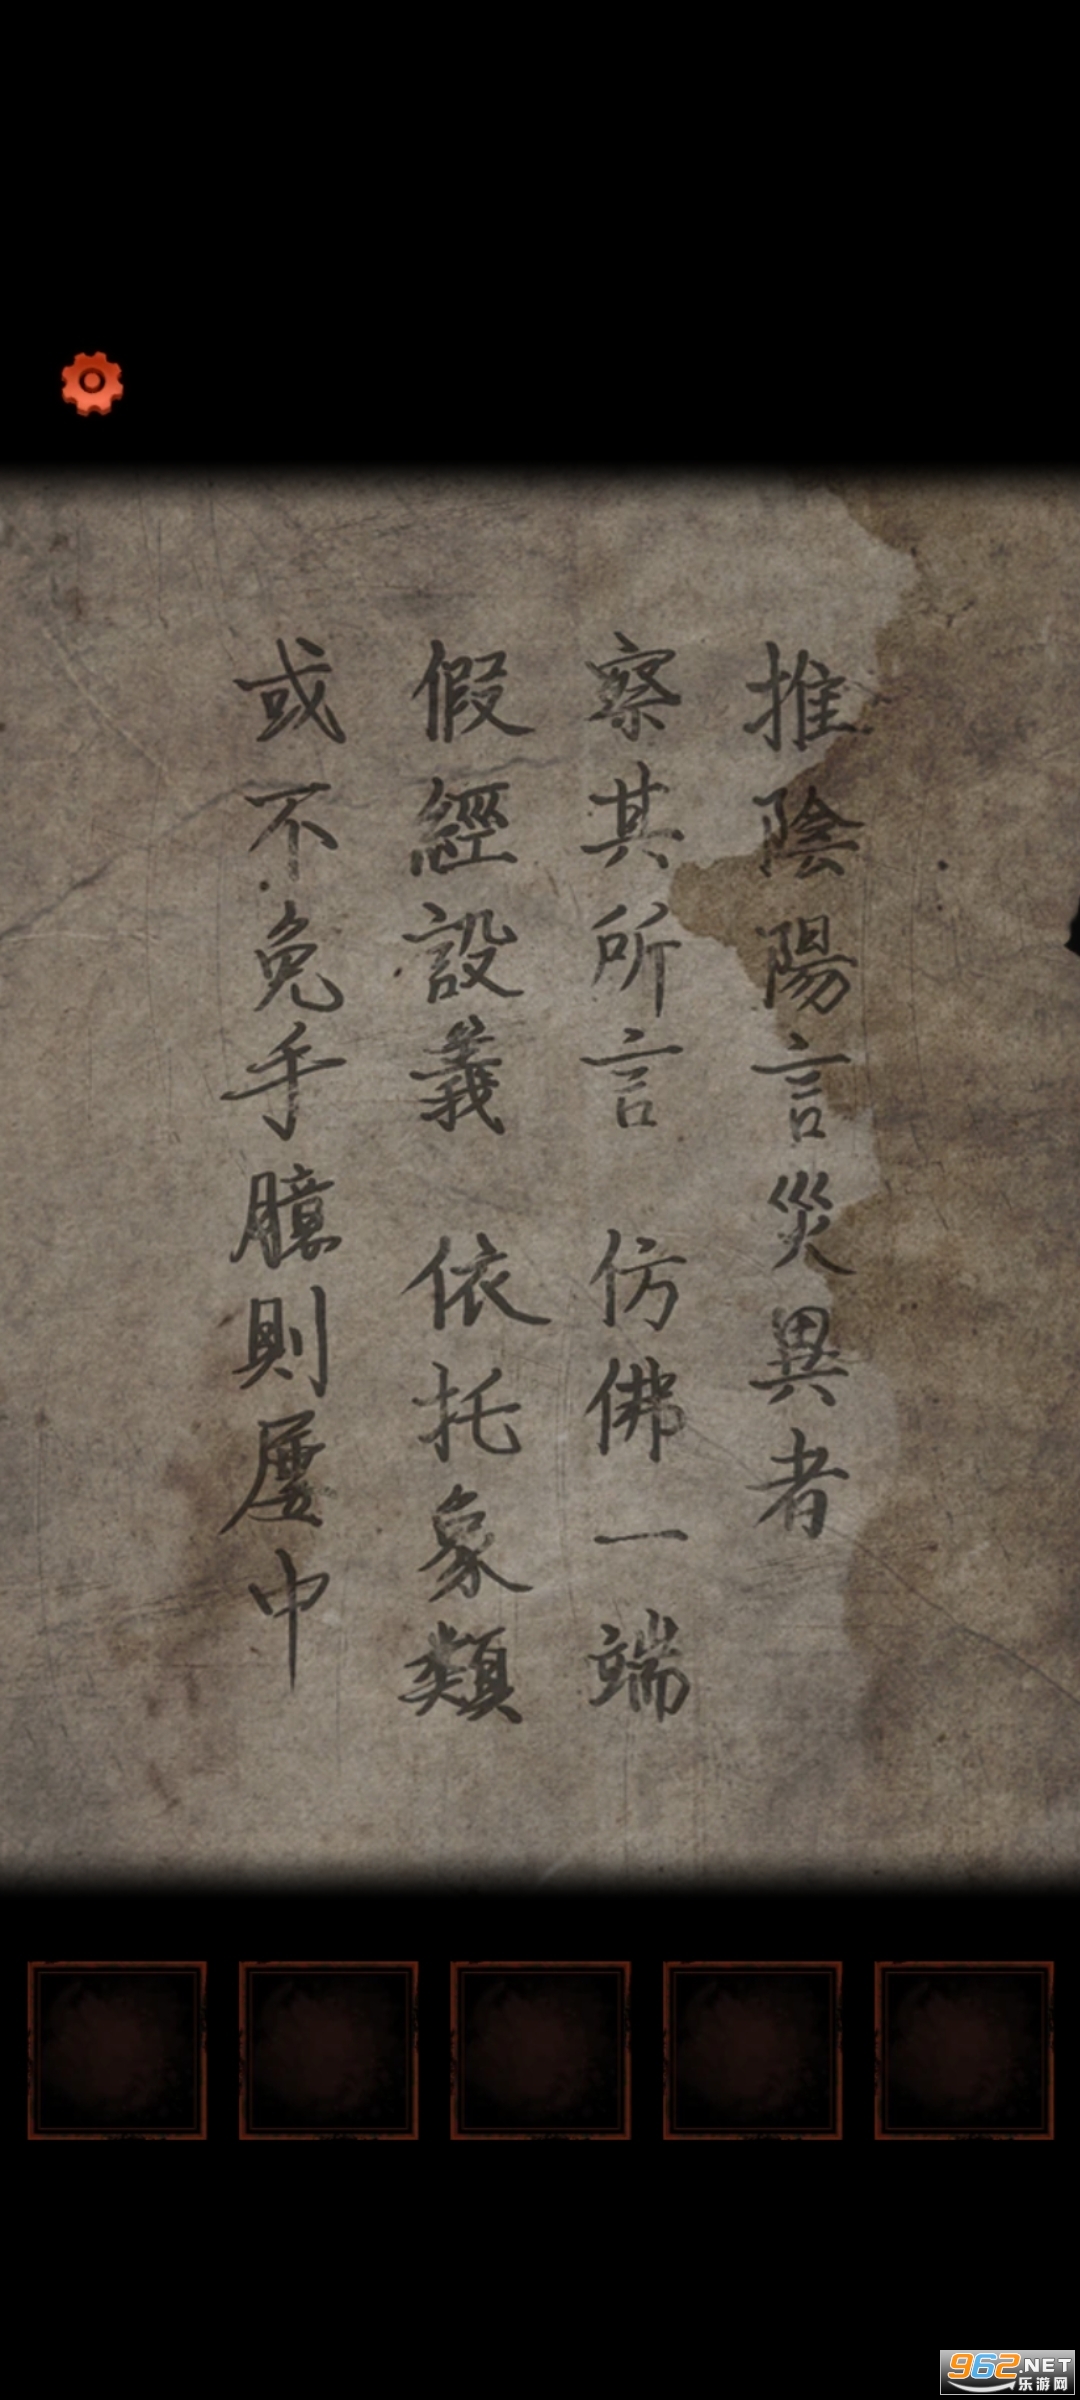 推陰陽言災異者
察其所言 仿佛一端
假經設義 依托象類
或不免乎臆則屢中
962.NET
乐游网